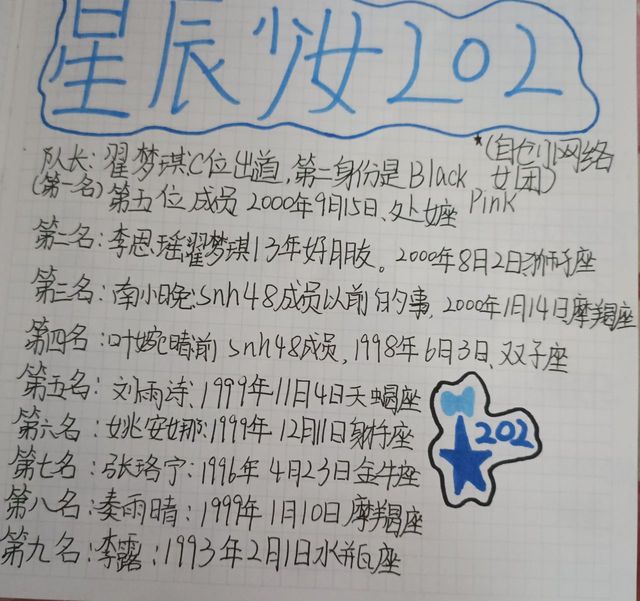 星辰少女202
*(自创网络女团)
队长:翟梦琪C位出道,第二身份是Black Pink
(第一名)第五位成员 2000年9月15日、处女座
第二名:李思瑶翟梦琪13年好朋友。2000年8月2日狮子座
第三名:南小晚:snh48成员以前的事,2000年1月14日摩羯座
第四名:叶婉晴:前snh48成员,1998年6月3日、双子座
第五名:刘雨诗:1999年11月4日天蝎座
第六名:姚安娜:1999年12月11日射手座
第七名:张珞宁:1996年4月23日金牛座
第八名:秦雨晴:1999年1月10日摩羯座
第九名:李露:1993年2月1日水瓶座
202